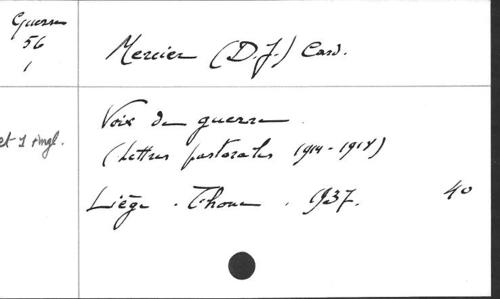 Guerre
56
1
Mercier (D.J.) Card.
Voix de guerre.
et 1 angl.
(Lettres pastorales 1914-1918)
Liège. Thone. 1937. 40